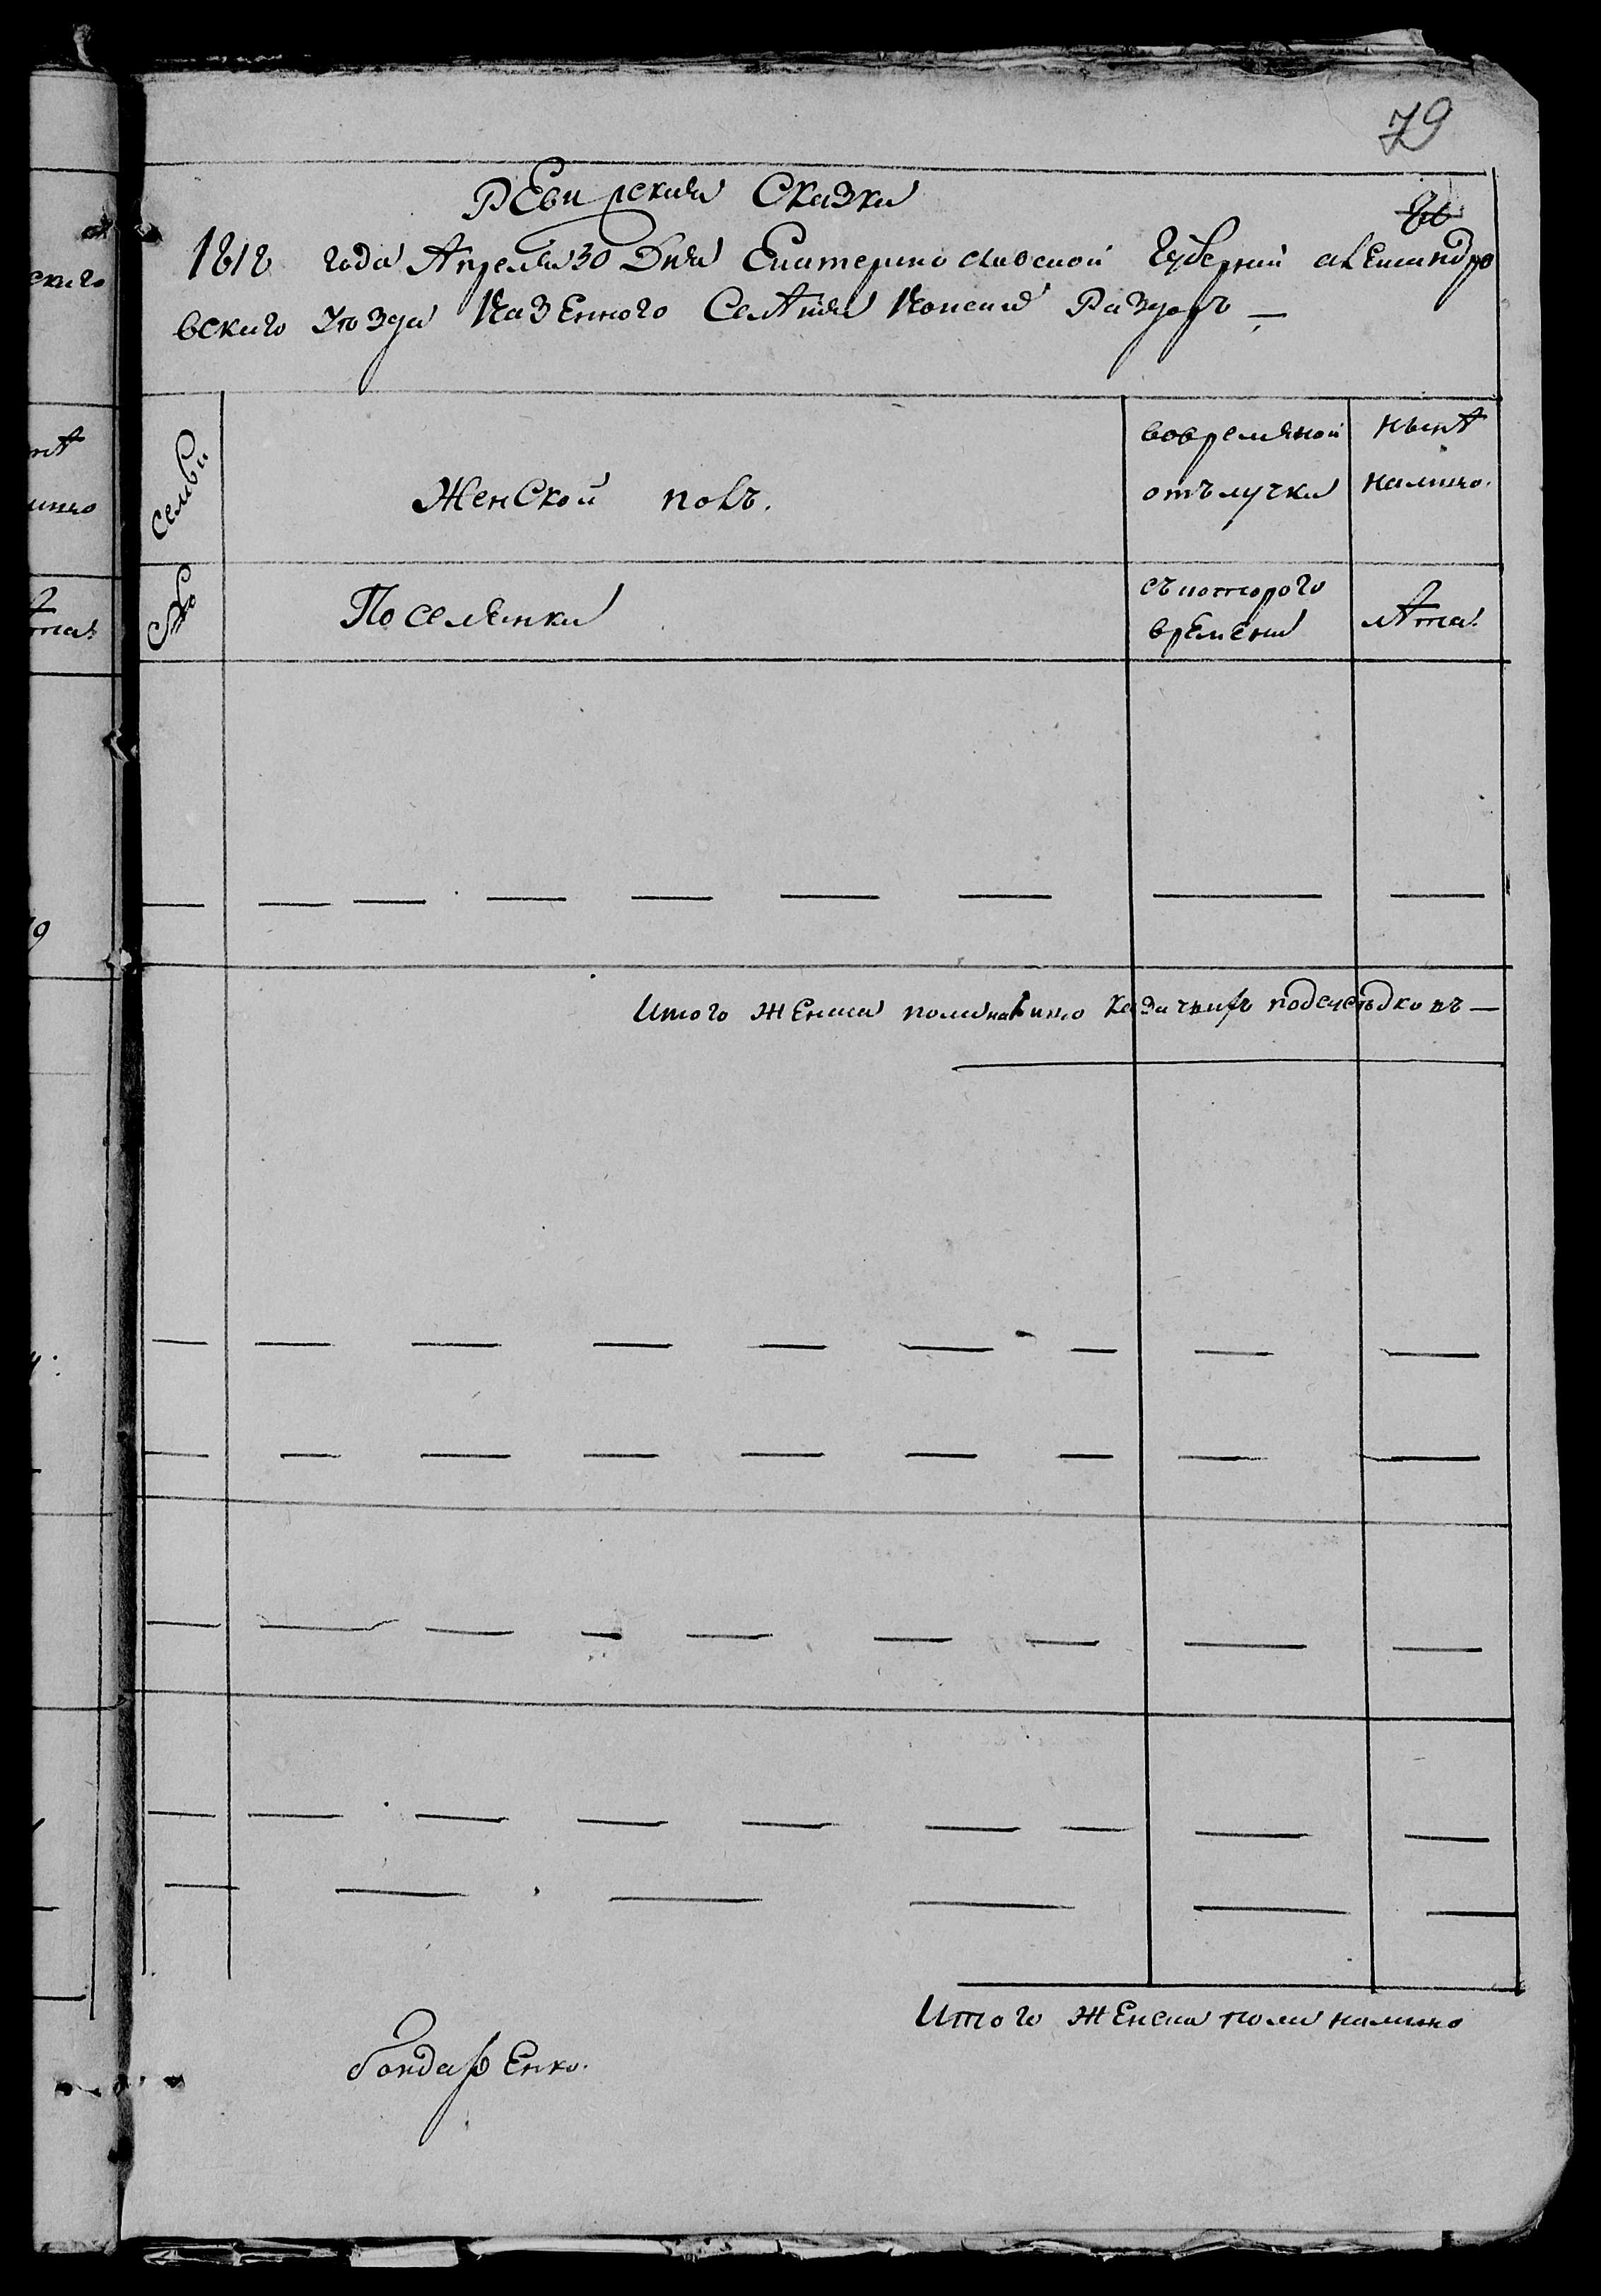 79
Ревирския Сказки
1818 года Апреля 30 Дня Екатеринославской Губернии алЕксандро
вского Уъзда КазЕнного СелѢния Конския Раздоръ —
семьи
Женской полъ.
вовремяной
отълучки
нынѢ
налично.
№
Поселянки
съкоторого
времЕни
лѢта
Итого жЕнска пола налично Казачьихъ подсусѣдковъ —
Итого жЕнска пола налично
бондарЕнко.